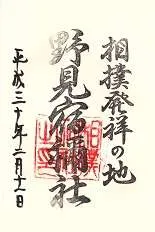 相撲発祥の地
野見宿禰社
平成三十年二月十二日